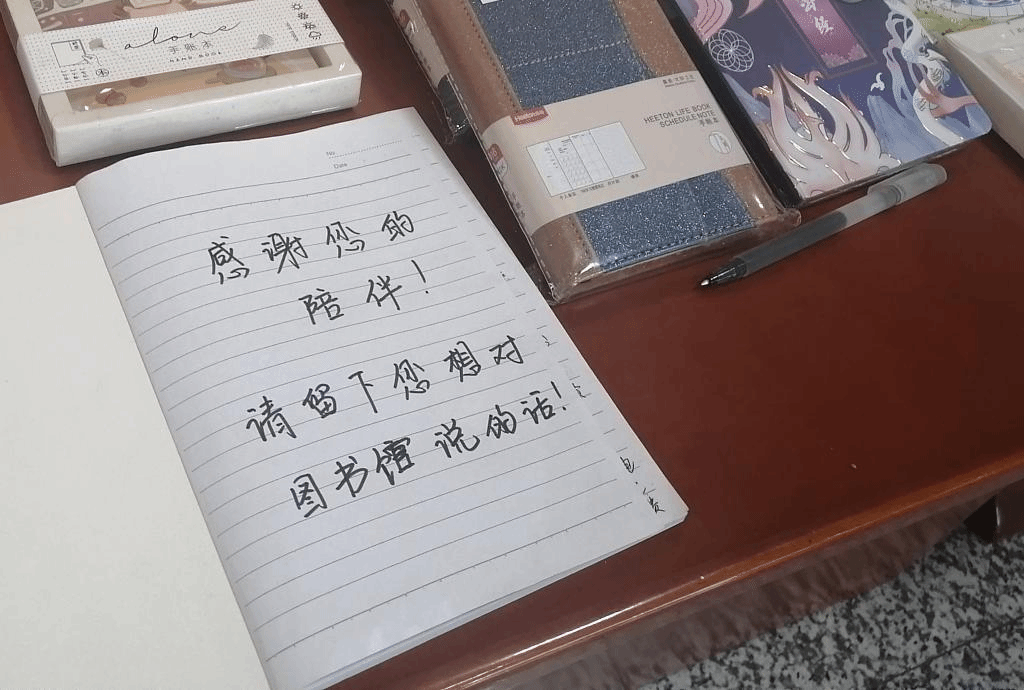 alone
手账本
HAND BOOK
No
Date
感谢您的
陪伴！
请留下您想对
图书馆说的话！
Heeton
HEETON LIFE BOOK
SCHEDULE NOTE
手账本